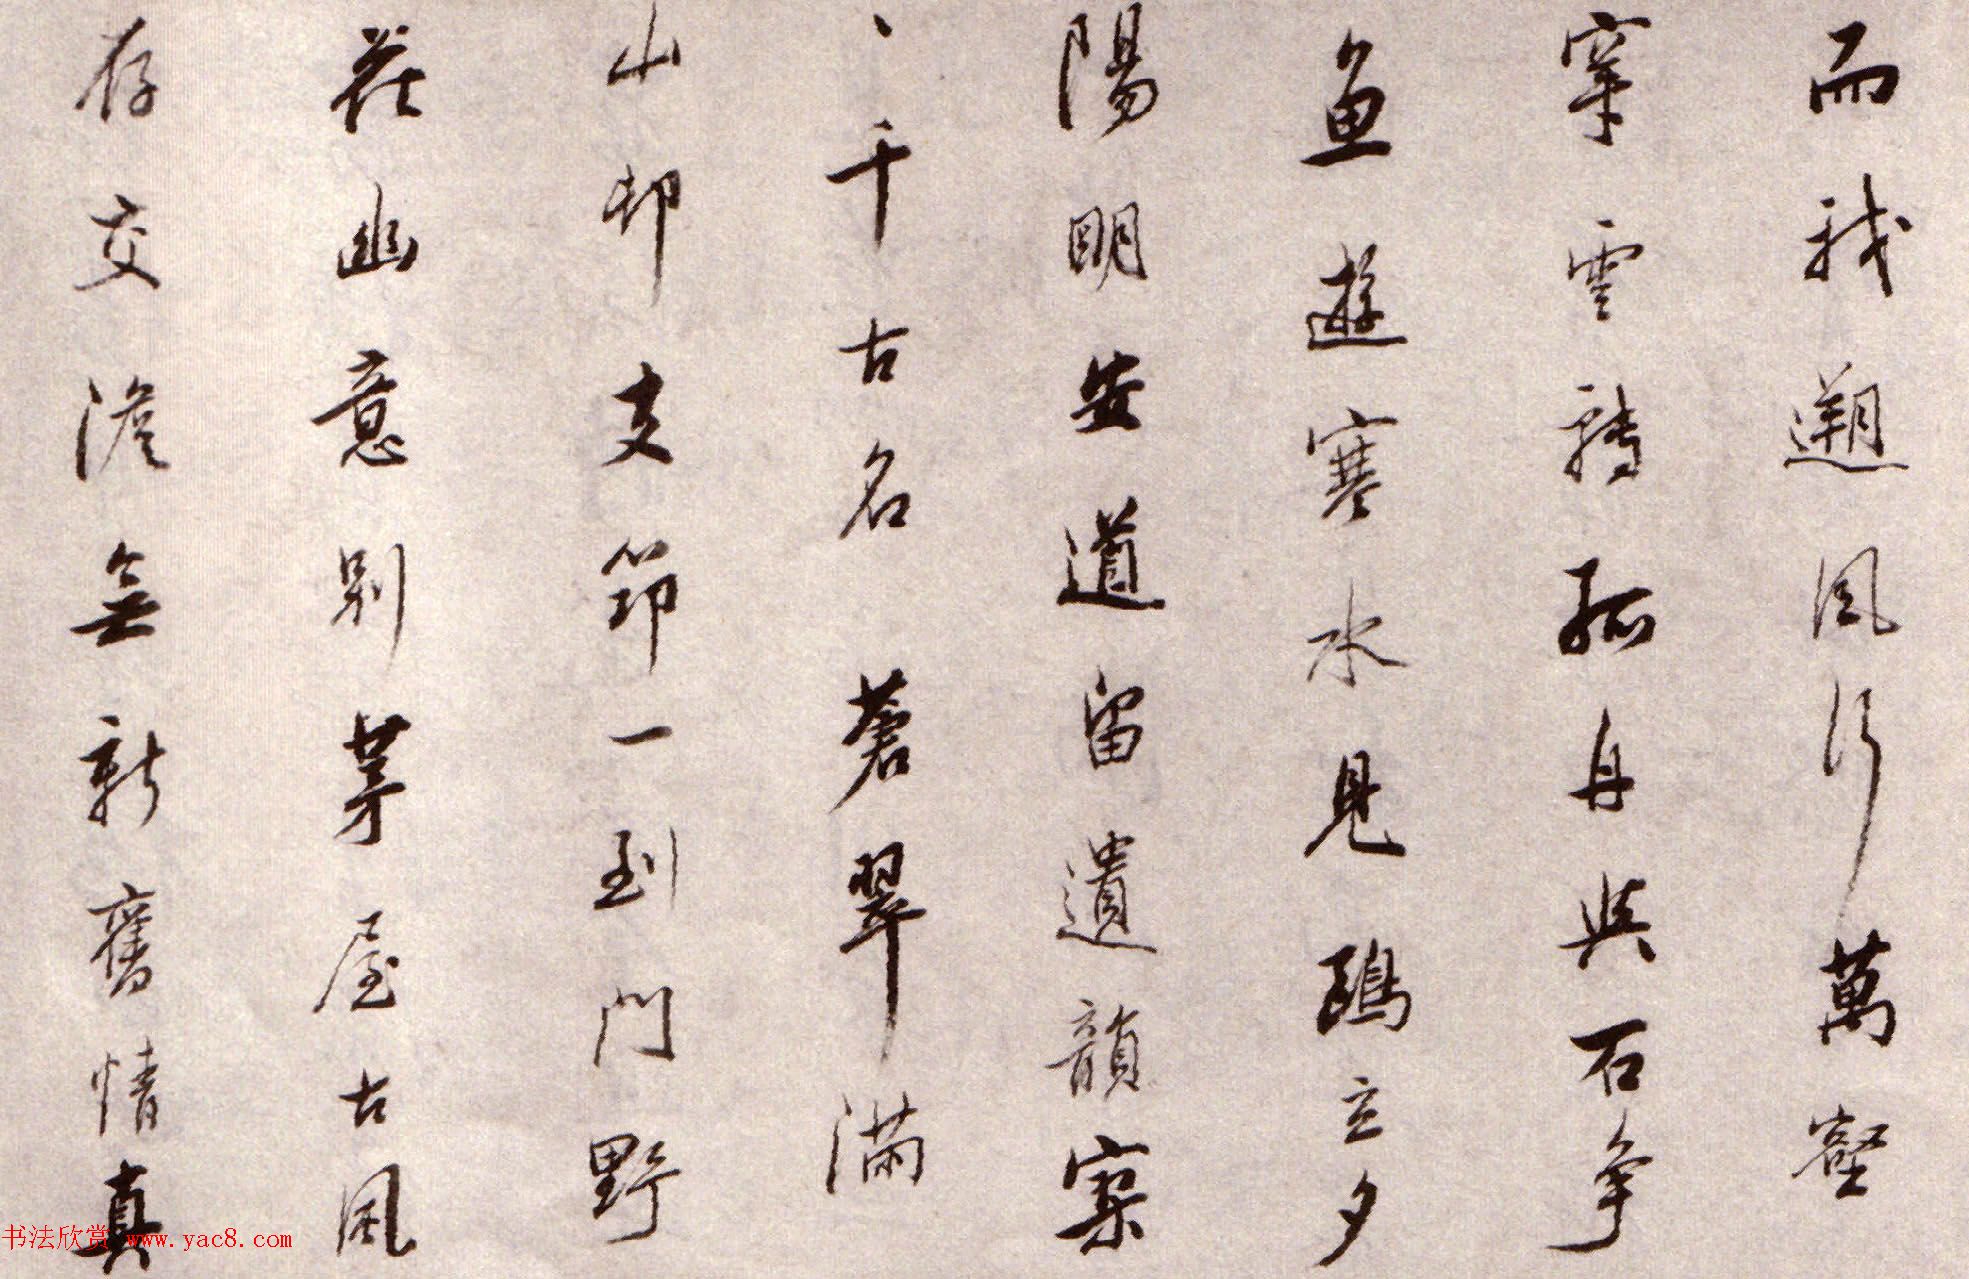 而我遡風行萬壑
穿雲轉孤舟與石爭
魚遊寒水見鷗立夕
陽明安道留遺韻寥
、千古名 蒼翠滿
山邨支笻一到門野
花幽意別茅屋古風
存交澹無新舊情真
书法欣赏 www.yac8.com